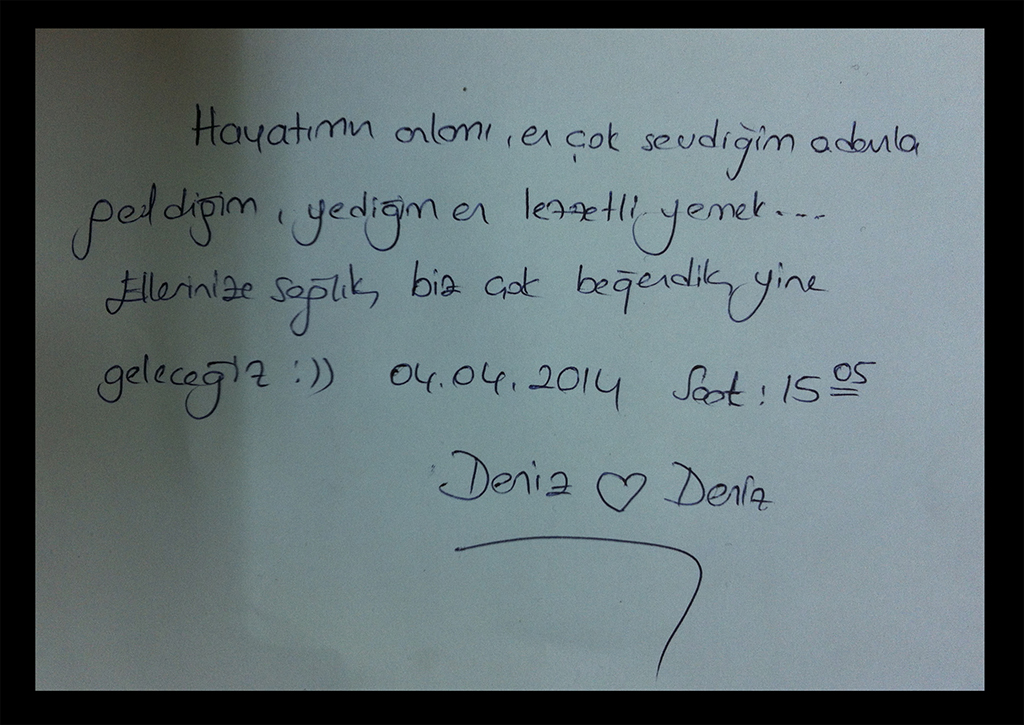 Hayatımın anlamı, en çok sevdiğim adamla
geldiğim, yediğim en lezzetli yemek...
Ellerinize sağlık, biz çok beğendik, yine
geleceğiz :)) 04.04.2014 Saat : 15 05
Deniz ♡ Deniz